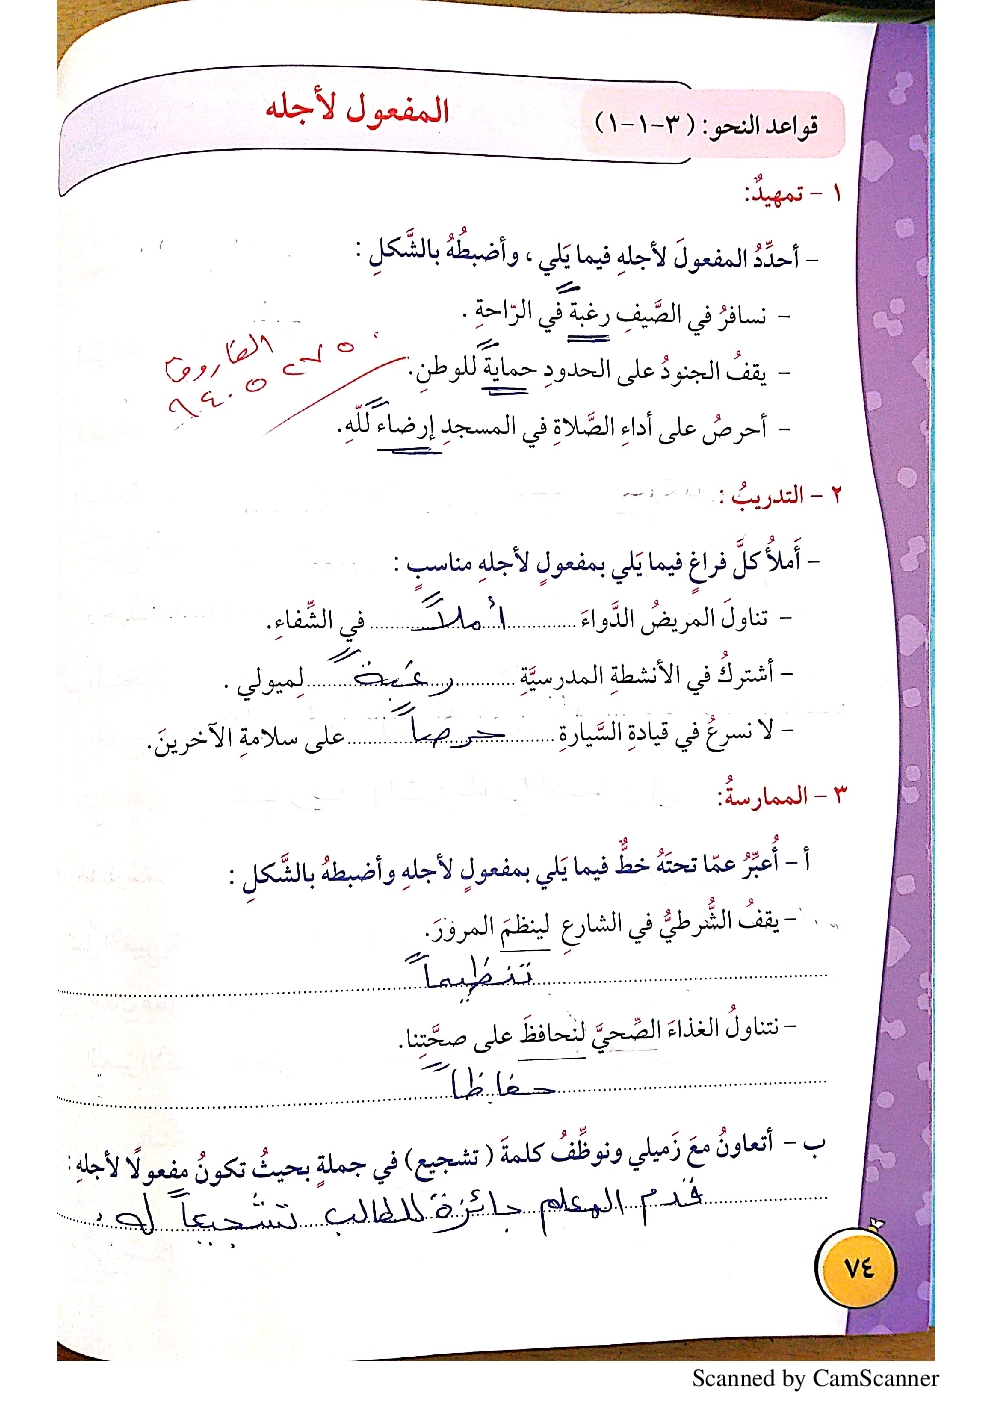 قواعد النحو: (٣-١-١)
المفعول لأجله
١ - تمهيدٌ:
- أحدِّدُ المفعولَ لأجلهِ فيما يَلي ، وأضبطُهُ بالشَّكلِ :
- نسافرُ في الصَّيفِ رغبةً في الرّاحةِ .
- يقفُ الجنودُ على الحدودِ حمايةً للوطنِ.
- أحرصُ على أداءِ الصَّلاةِ في المسجدِ إرضاءً للّهِ.
الفاروق
٢ - التدريبُ :
- أَملأُ كلَّ فراغٍ فيما يَلي بمفعولٍ لأجلهِ مناسبٍ :
- تناولَ المريضُ الدَّواءَ ........ أملاً ........ في الشِّفاءِ.
- أشتركُ في الأنشطةِ المدرسيَّةِ ........ رغبةً ........ لِميولي .
- لا نسرعُ في قيادةِ السَّيارةِ ........ حرصاً ........ على سلامةِ الآخرينَ.
٣ - الممارسةُ:
أ - أُعبِّرُ عمّا تحتَهُ خطٌّ فيما يَلي بمفعولٍ لأجلهِ وأضبطهُ بالشَّكلِ :
- يقفُ الشُّرطيُّ في الشارعِ لينظمَ المرورَ.
تنظيماً
- نتناولُ الغذاءَ الصِّحيَّ لنحافظَ على صحَّتِنا.
حفاظاً
ب - أتعاونُ معَ زَميلي ونوظِّفُ كلمةَ ( تشجيع) في جملةٍ بحيثُ تكونُ مفعولًا لأجلهِ:
قدم المعلم جائزة للطالب تشجيعاً له.
٧٤
Scanned by CamScanner